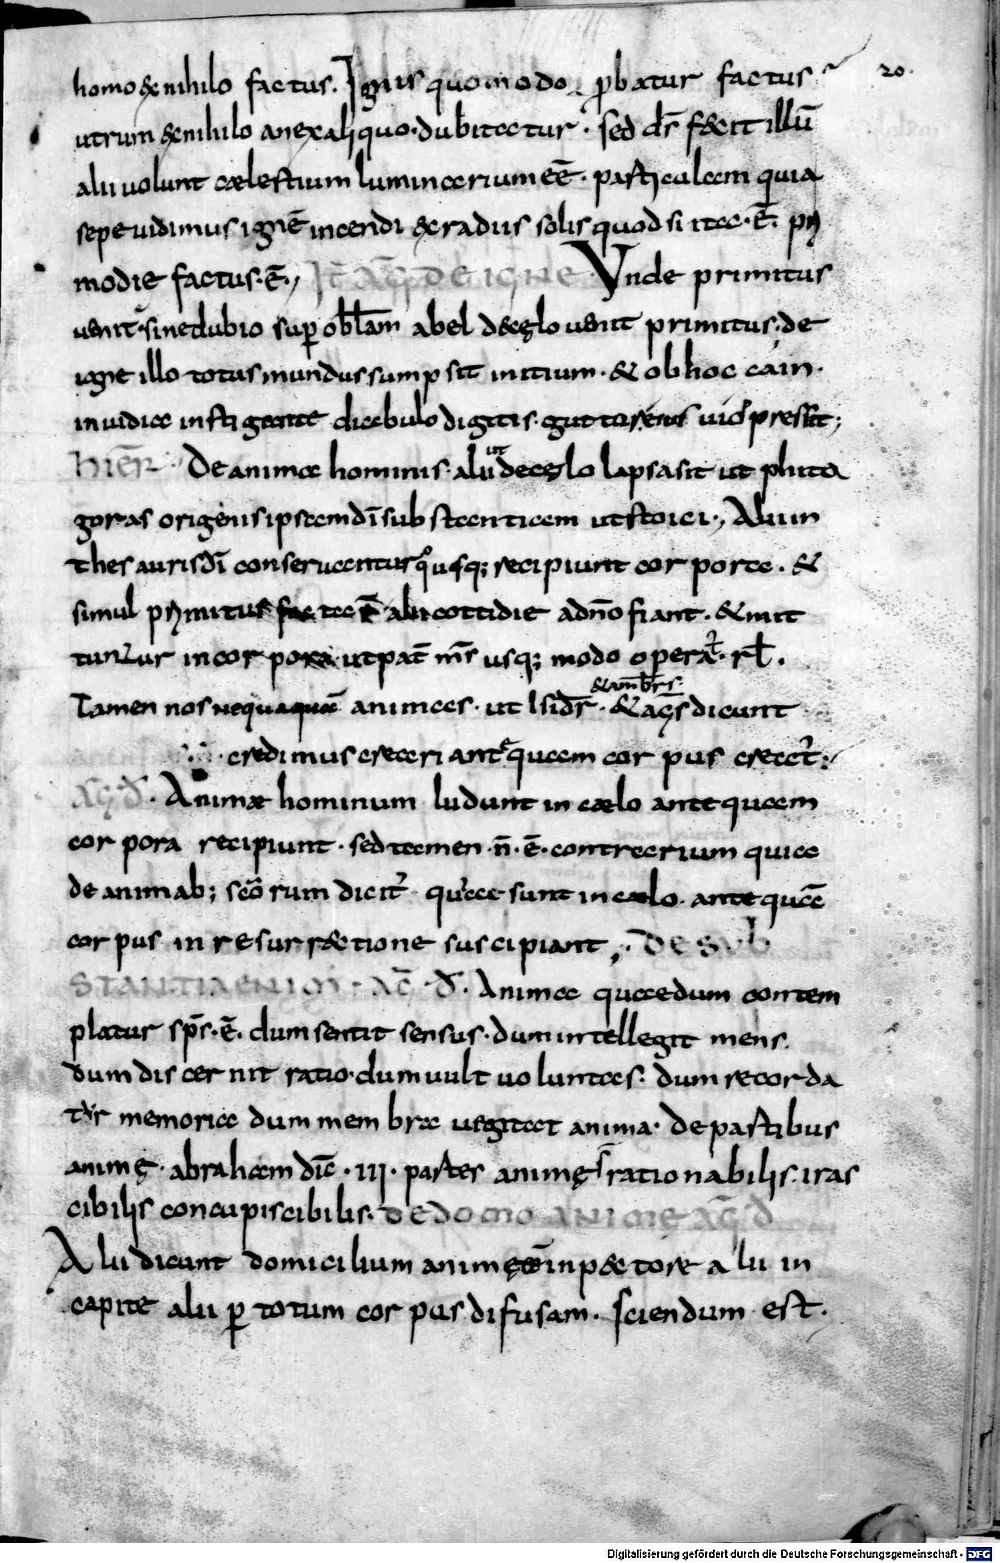 homo & nihilo factus. Ignis quomodo ꝓbatur factus 20.
utrum & nihilo an ex aliquo. dubitatur. sed dr̄ fecit illū
alii uolunt cælestium luminarium eē. particulam quia
sepe uidimus ignē incendi & radiis solis quod si ita. ē. pri
modie factus. ē. IT̄ AḠ DE IGNE Unde primitus
uenit. sine dubio suꝑ obl̄am abel de cęlo uenit primitus. de
igne illo totus mundus sumpsit initium. & ob hoc cain.
inuidia instigante diabulo digitis. guttur eius pressit;
HIER̄. De animæ hominis. alii ut de cęlo lapsa sit ut phita
goras origenis ipsam dī substantiam ut stoici., Alii in
thesauris dī conseruantur quousq; recipiunt corpore. &
simul primitus alii cottidie ad nō fiant. & mit
tuntur in corpora ut pat̄ m̄s usq; modo operat̄. rl̄.
&amb̄rs.
Tamen nos nequaquā animas. ut Isidr̄. & aḡs dicunt
credimus creari antequam corpus creat̄;
AḠ. D̄. Animæ hominum ludunt in cælo ante quam
corpora recipiunt. sed tamen. n̄. ē. contrarium quia
de animab; scōrum dicit̄ quia sunt in cælo. ante quā
corpus in resurrectione suscipiant,. DE SUB
STANTIA ENIM. AḠ. D̄. Anima quædum contem
platur sp̄s. ē. dum sentit sensus. dum intellegit mens.
dum discernit ratio. dum uult uoluntas. dum recorda
tur memoria dum membra uegitat anima. De partibus
animę. abraham dic̄. III. partes animę rationabilis. iras
cibilis concupiscibilis. DE DOMO ANIME AḠ D̄
Alii dicunt domicilium animę in pectore alii in
capite alii ꝑ totum corpus difusam. sciendum est.
Digitalisierung gefördert durch die Deutsche Forschungsgemeinschaft - DFG